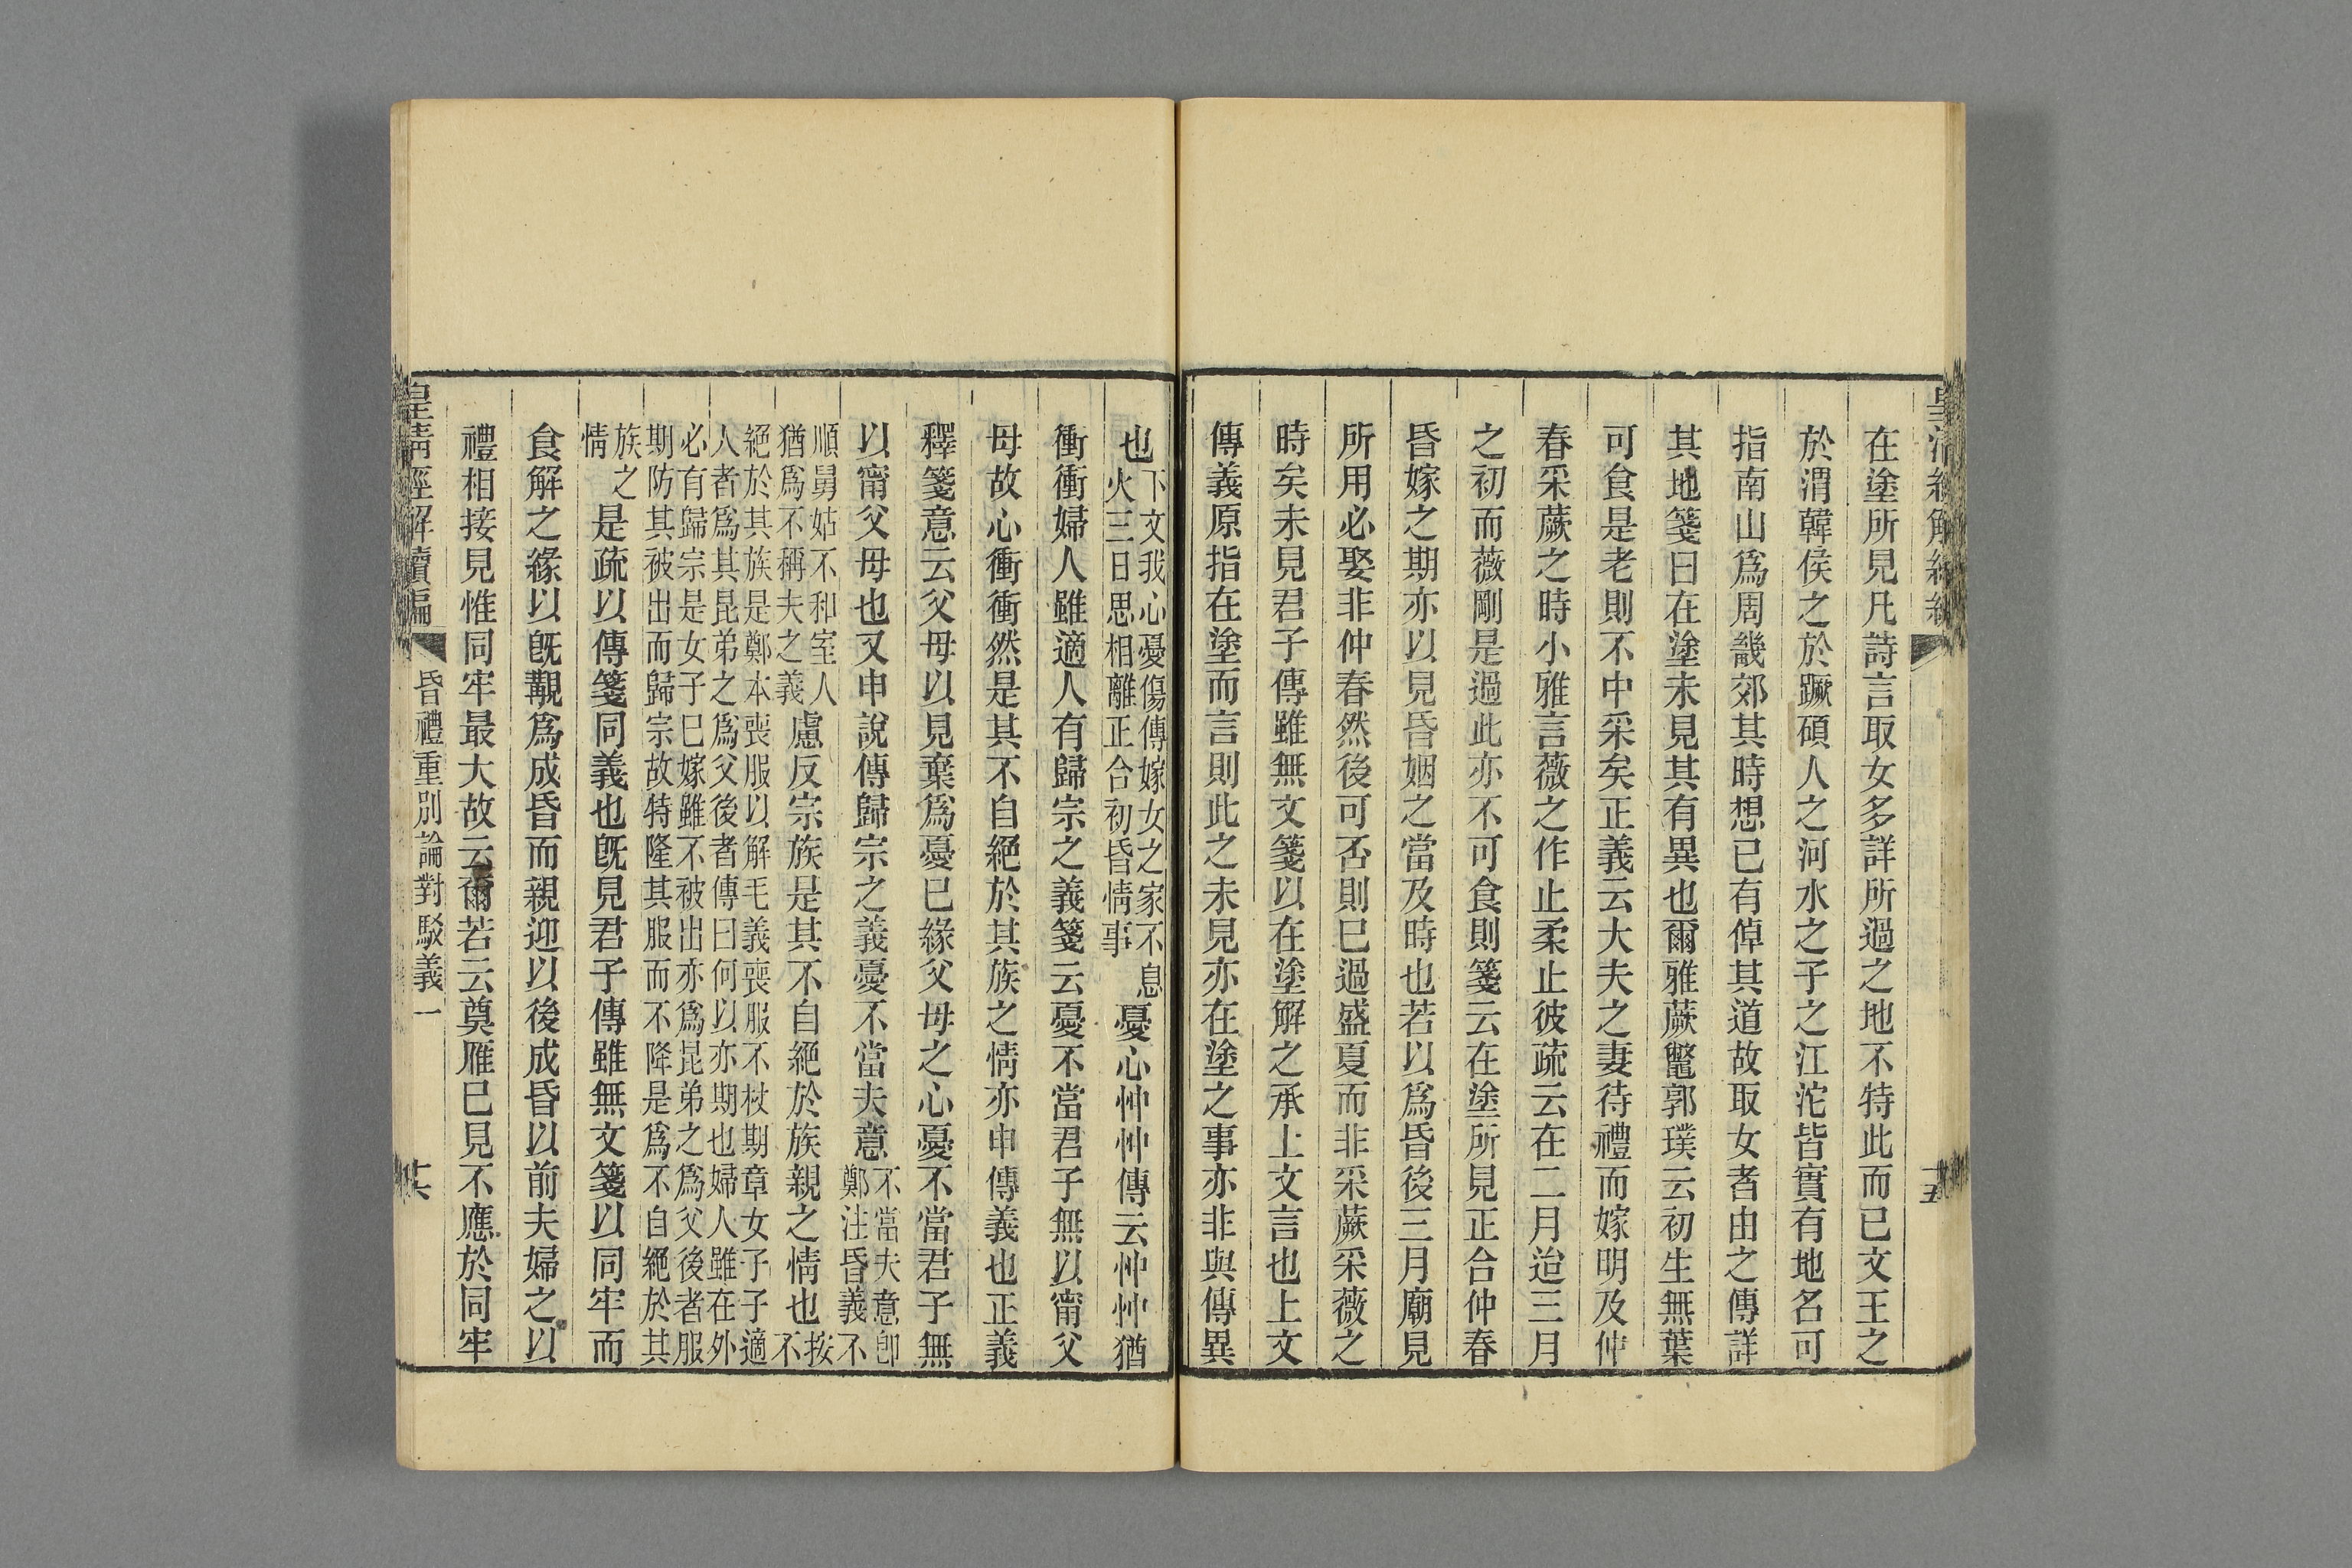 在塗所見凡詩言取女多詳所過之地不特此而已文王之
於渭韓侯之於蹶碩人之河水之子之江沱皆實有地名可
指南山爲周畿郊其時想已有倬其道故取女者由之傳詳
其地箋曰在塗未見其有異也爾雅蕨虌郭璞云初生無葉
可食是老則不中采矣正義云大夫之妻待禮而嫁明及仲
春采蕨之時小雅言薇之作止柔止彼疏云在二月迨三月
之初而薇剛是過此亦不可食則箋云在塗所見正合仲春
昏嫁之期亦以見昏姻之當及時也若以爲昏後三月廟見
所用必娶非仲春然後可否則已過盛夏而非采蕨采薇之
時矣未見君子傳雖無文箋以在塗解之承上文言也上文
傳義原指在塗而言則此之未見亦在塗之事亦非與傳異
也下文我心憂傷傳嫁女之家不息火三日思相離正合初昏情事憂心忡忡傳云忡忡猶
衝衝婦人雖適人有歸宗之義箋云憂不當君子無以甯父
母故心衝衝然是其不自絕於其族之情亦申傳義也正義
釋箋意云父母以見棄爲憂已緣父母之心憂不當君子無
以甯父母也又申說傳歸宗之義憂不當夫意不當夫意卽鄭注昏義不
順舅姑不和室人猶爲不稱夫之義慮反宗族是其不自絕於族親之情也按不
絕於其族是鄭本喪服以解毛義喪服不杖期章女子子適人者爲其昆弟之爲父後者傳曰何以亦期也婦人雖在外
必有歸宗是女子已嫁雖不被出亦爲昆弟之爲父後者服期防其被出而歸宗故特隆其服而不降是爲不自絕於其
族之情是疏以傳箋同義也旣見君子傳雖無文箋以同牢而
食解之緣以旣覯爲成昏而親迎以後成昏以前夫婦之以
禮相接見惟同牢最大故云爾若云奠雁已見不應於同牢
皇淸經解續編
昏禮重別論對駁義一